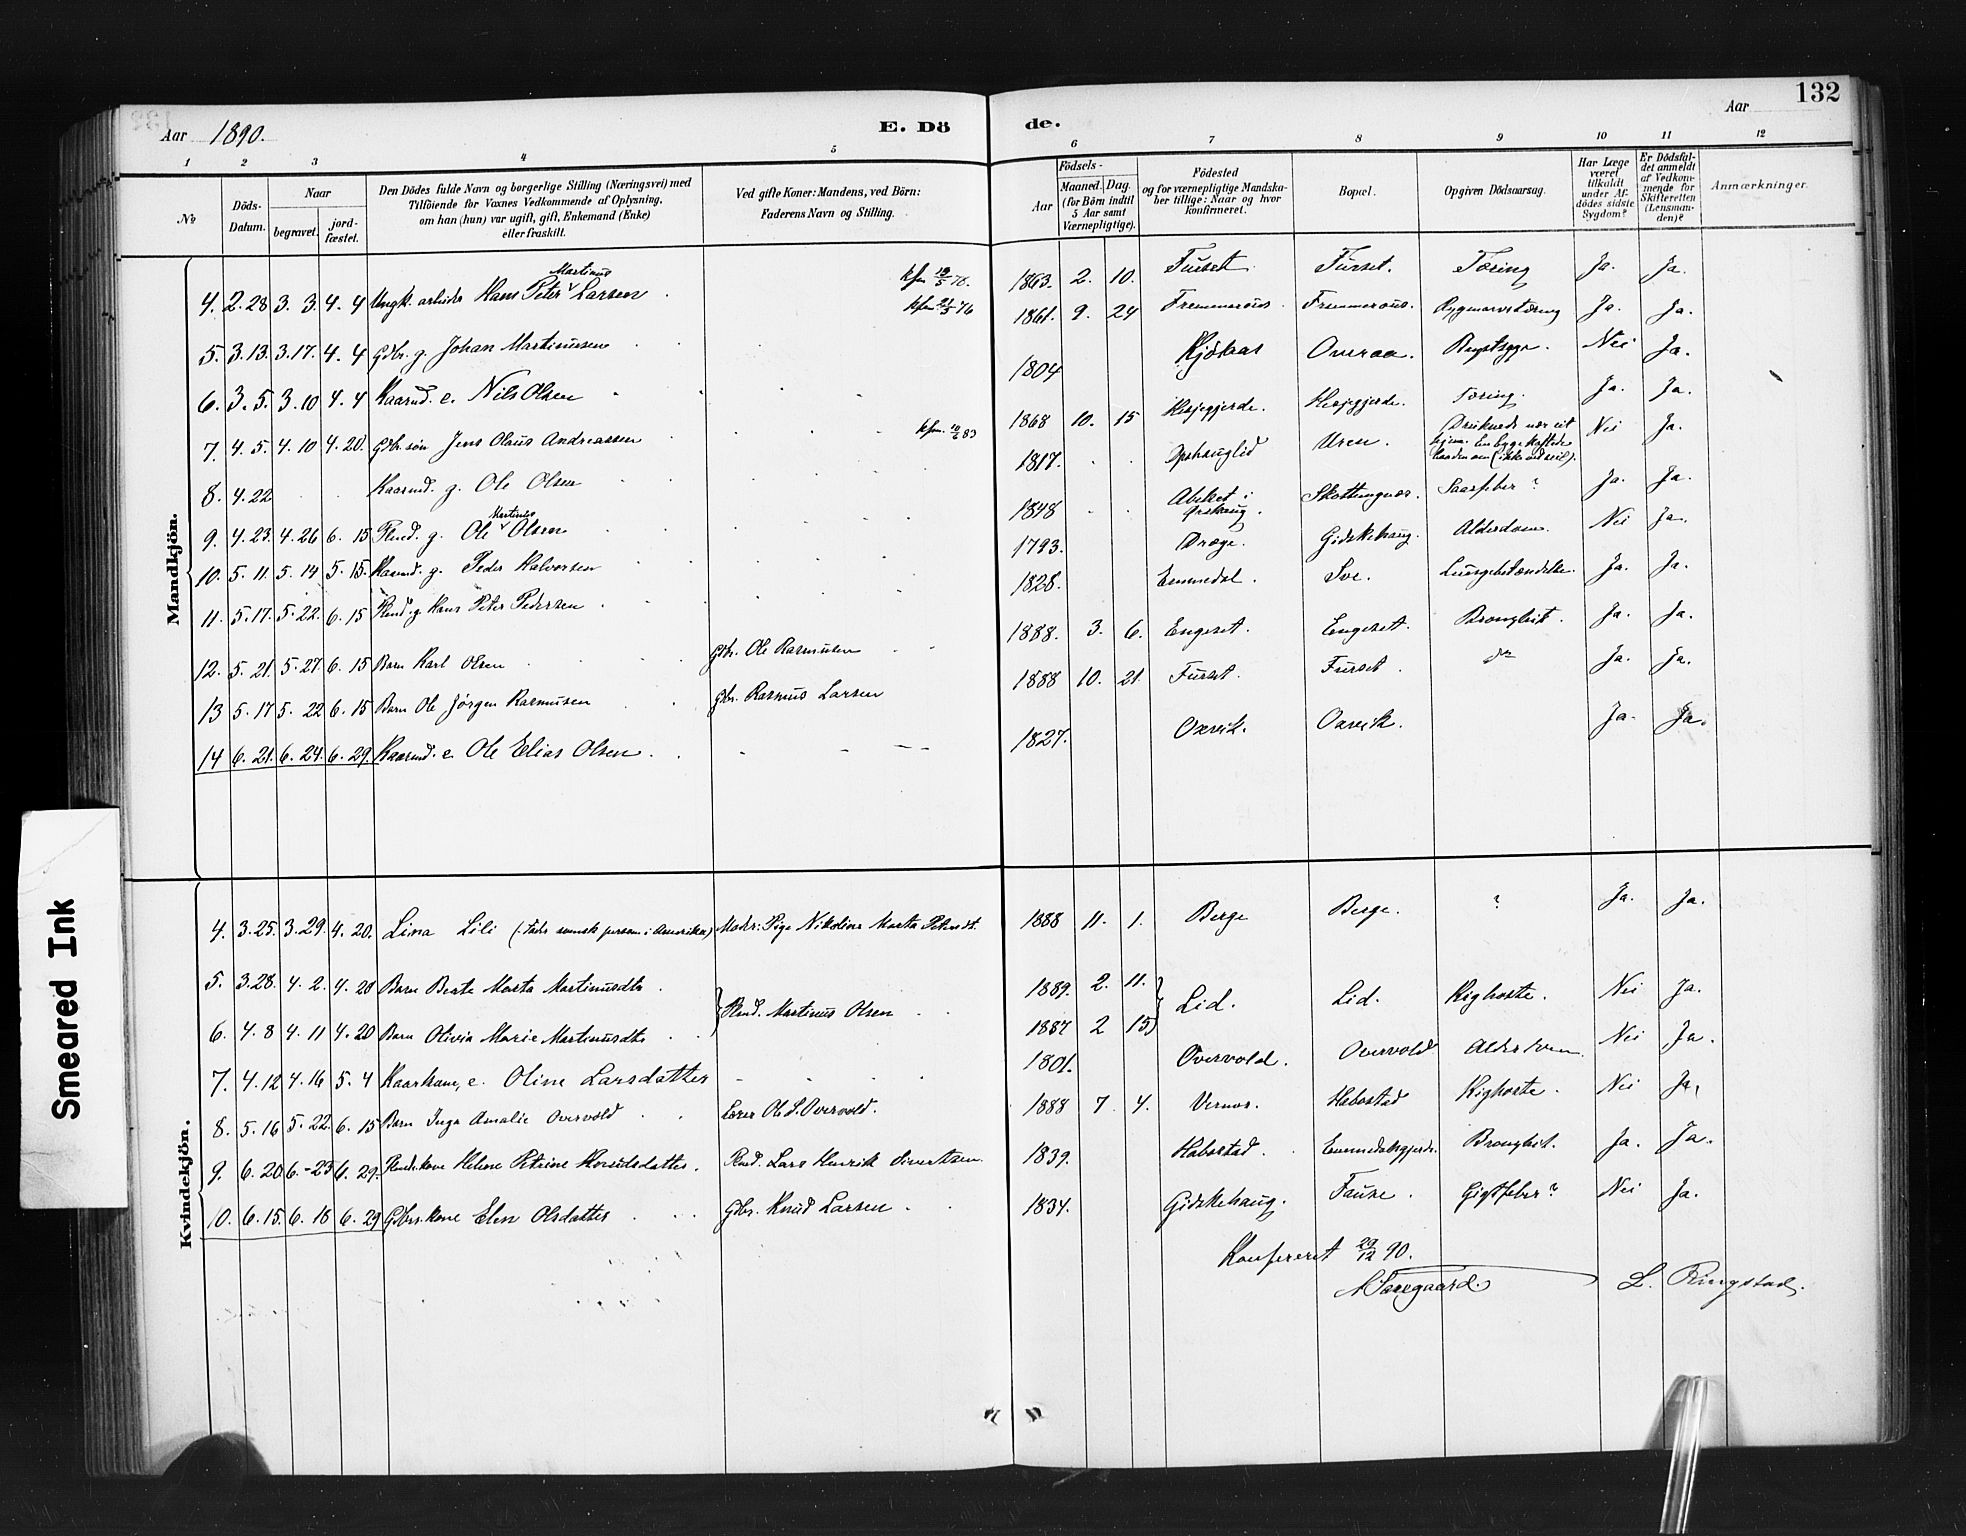 132
Aar 1890.
E. Dö de.
Aar
1 2 3 4 5 6 7 8 9 10 11 12
No
Döds-Datum.
Naar
begravet.
jord-fæstet.
Den Dödes fulde Navn og borgerlige Stilling (Næringsvei) med Tilföiende for Voxnes Vedkommende af Oplysning, om han (hun) var ugift, gift, Enkemand (Enke) eller fraskilt.
Ved gifte Koner: Mandens, ved Börn: Faderens Navn og Stilling.
Födsels-
Aar
Maaned. Dag.
(for Börn indtil 5 Aar samt Værnepligtige).
Födested og for værnepligtige Mandska-ber tillige: Naar og hvor konfirmeret.
Bopæl.
Opgiven Dödsaarsag.
Har Læge været tilkaldt under Af-dödes sidste Sygdom?
Er Dödsfal-det anmeldt af Vedkom-mende for Skifteretten (Lensman-den)?
Anmærkninger.
Mandkjön.
4. 2.28 3. 3 4. 4 Ungk. arbeider Hans Peter Martinus Larsen 1863. 2. 10. Furset Furset. Tæring Ja. Ja.
5. 3.13. 3.17. 4. 4 Gdbr. g. Johan Martinussen 1861. 9. 24 Fremmerøus Fremmerøus. Rygmarvstæring Ja. Ja.
6. 3. 5. 3. 10 4. 4 Kaarmd. e. Nils Olsen 1804 Overaa. Brystsyge. Nei Ja.
7. 4. 5. 4. 10 4. 20. Gdbr. søn Jens Olaus Andreassen 1868 10. 15 Hesjegjerde. Hesjegjerde. Tæring. Ja. Ja.
8. 4. 22 Kaarmd. g. Ole Olsen 1817. Opshauglid Uren. Druknede nær sit hjem. En byge kastede baaden om Nei Ja.
9. 4. 23. 4. 26 6. 15 g. Ole Martinus Olsen 1848 Ørskoug. Ja. Ja.
10. 5. 11. 5. 14 5. 15. Kaarmd. g. Peder Halvorsen 1793. Drage. Gidskehaug. Alderdom. Nei Ja.
11. 5. 17. 5. 22. 6. 15 g. Hans Peter Pedersen 1828. Emmedal. Sve. Lungebetændelse. Ja. Ja.
12. 5. 21. 5. 27. 6. 15 Barn Karl Olsen Gdbr. Ole Rasmusen 1888. 3. 6. Engeset. Engeset. Bronghit. Ja. Ja.
13 5. 17 5. 22 6. 15 Barn Ole Jørgen Rasmusen Gbr. Rasmus Larsen 1888 10. 21 Furset. Furset. do Ja. Ja.
14 6. 21. 6. 24. 6. 29. Kaarmd. e. Ole Elias Olsen. 1827. Oxevik. Oxevik. Ja. Ja.
Kvindekjön.
4. 3.25. 3.29. 4. 20. Lina Lili (: Fader svensk person i Amerika) Moder: Pige Nikoline Marta 1888 11. 1. Berge Berge. ? Ja. Ja.
5. 3.28. 4. 2. 4. 20 Barn Berte Marta Martinusdtr. 1889. 2. 11. Lid. Lid. Kighoste. Nei Ja.
6. 4. 8 4. 11 4. 20 Barn Olivia Marie Martinusdtr. Martinus Olsen 1887 2 15 Nei Ja.
7. 4. 12 4. 16 5. 4 Kaarkone, e. Oline Larsdatter 1801. Overvold. Overvold Nei Ja,
8. 5. 16 5. 22. 6. 15 Barn Inga Amalie Overvold Lærer Ole L. Overvold. 1888 7. 4. Habostad Kighoste.
9. 6. 20 6. 23 6. 29. Helene Petrine Lars Henrik Sivertsen. 1839. Habostad. Emmedalsgjerde. Bronghit. Ja. Ja.
10. 6. 15. 6. 18 6. 29 Gdbrs. kone Elen Olsdatter Gbr. Knud Larsen. 1834. Gidskehaug. Fauske. Gigtfeber? Nei Ja.
Konfereret 29/12 90.
L. Ringstad.
Smeared Ink